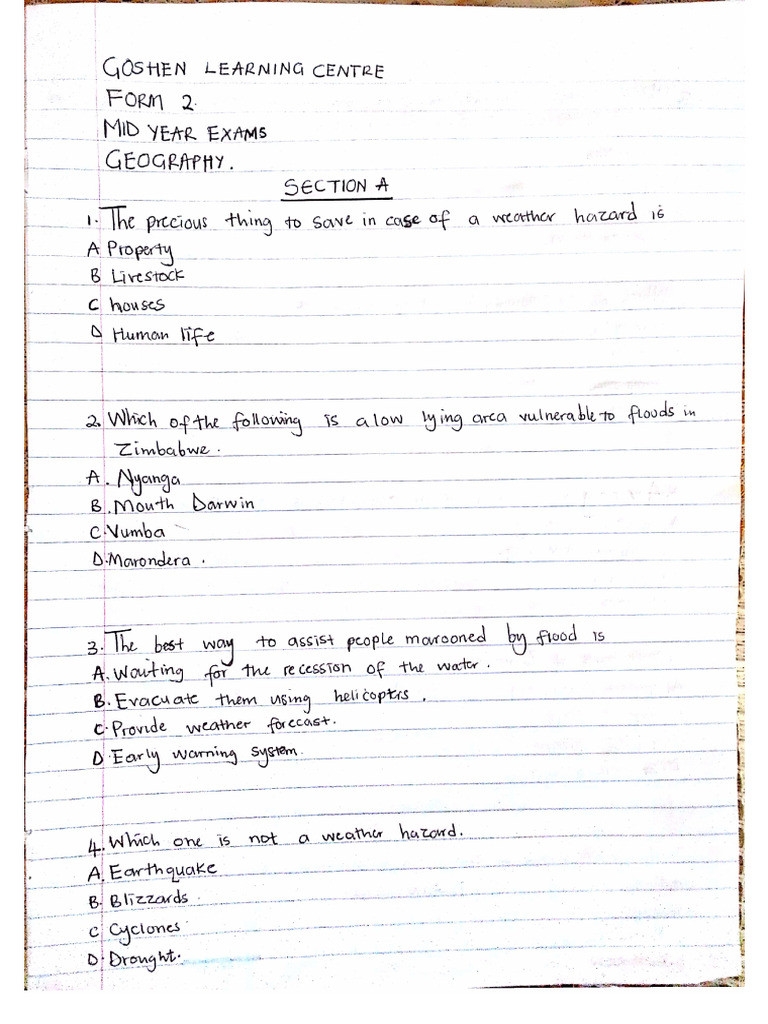 GOSHEN LEARNING CENTRE
FORM 2.
MID YEAR EXAMS
GEOGRAPHY.
SECTION A
1. The precious thing to save in case of a weather hazard is
A Property
B Livestock
C houses
D Human life
2. Which of the following is a low lying area vulnerable to floods in
Zimbabwe.
A. Nyanga
B. Mouth Darwin
C. Vumba
D. Marondera.
3. The best way to assist people marooned by flood is
A. Waiting for the recession of the water.
B. Evacuate them using helicopters.
C. Provide weather forecast.
D. Early warning system.
4. Which one is not a weather hazard.
A. Earthquake
B. Blizzards.
C Cyclones
D. Drought.